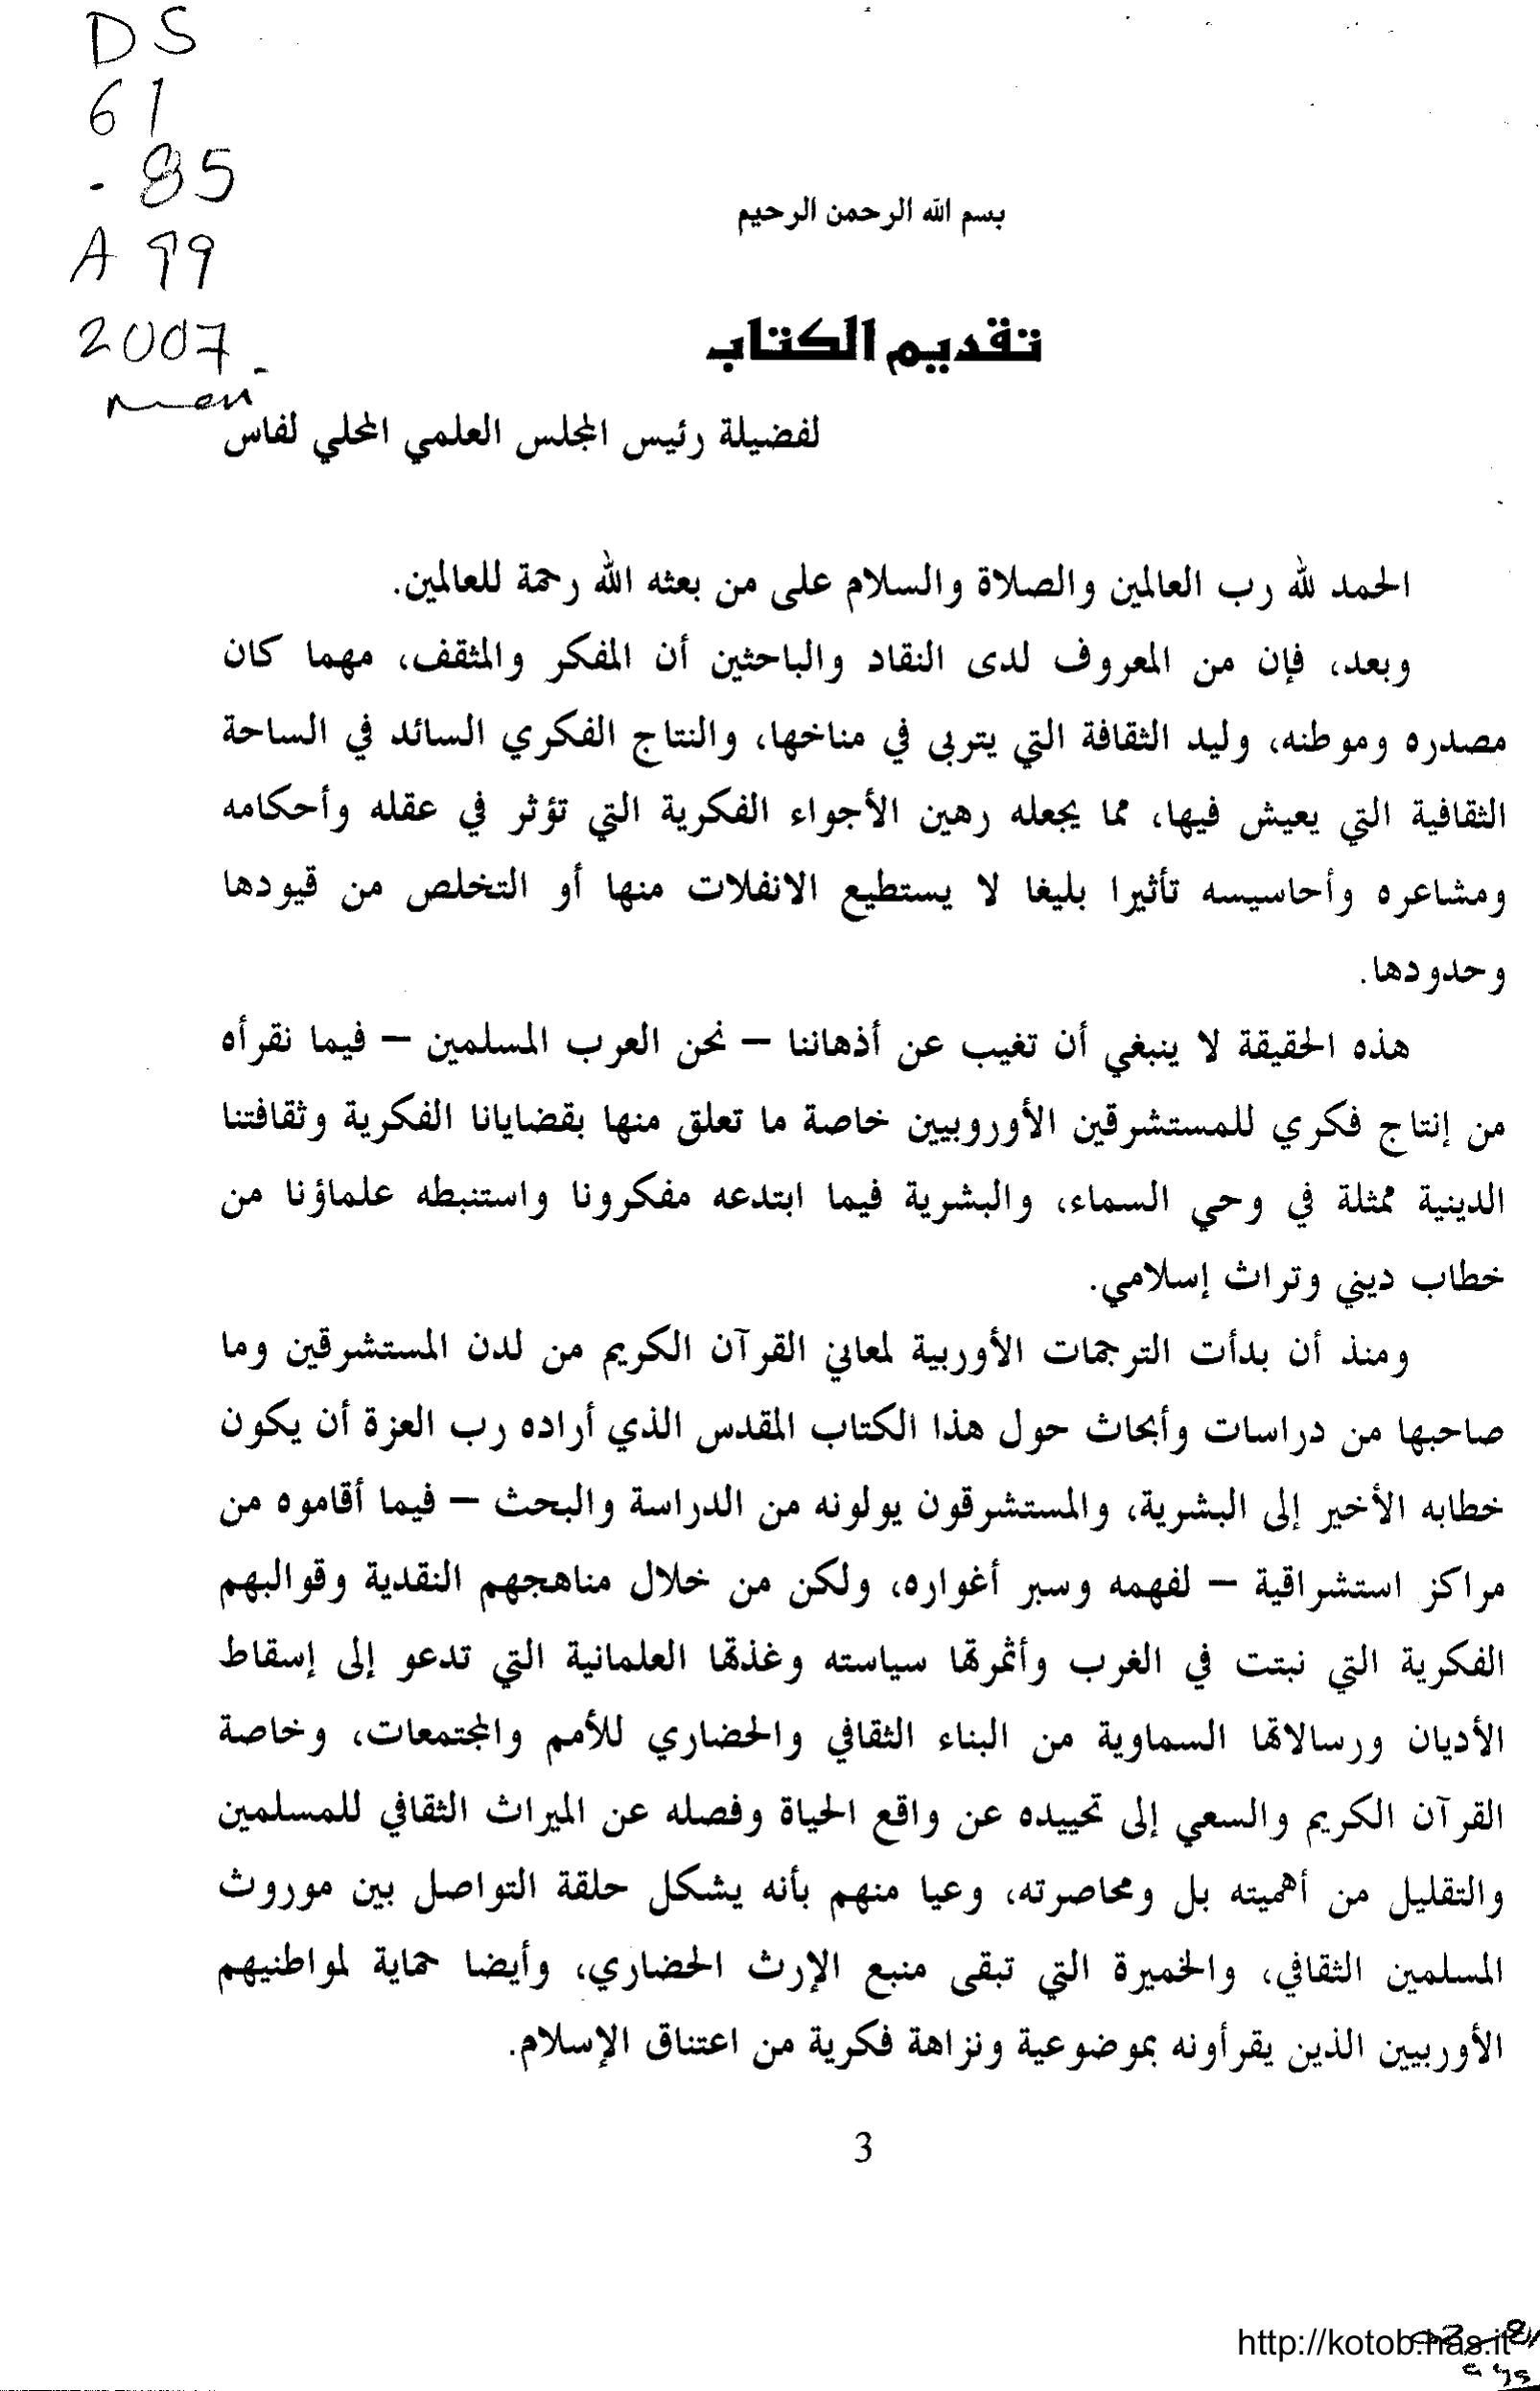 DS
61
.85
A99
2007
بسم الله الرحمن الرحيم
تقديم الكتاب
لفضيلة رئيس المجلس العلمي المحلي لفاس
الحمد لله رب العالمين والصلاة والسلام على من بعثه الله رحمة للعالمين.
وبعد، فإن من المعروف لدى النقاد والباحثين أن المفكر والمثقف، مهما كان
مصدره وموطنه، وليد الثقافة التي يتربى في مناخها، والنتاج الفكري السائد في الساحة
الثقافية التي يعيش فيها، مما يجعله رهين الأجواء الفكرية التي تؤثر في عقله وأحكامه
ومشاعره وأحاسيسه تأثيرا بليغا لا يستطيع الانفلات منها أو التخلص من قيودها
وحدودها.
هذه الحقيقة لا ينبغي أن تغيب عن أذهاننا – نحن العرب المسلمين – فيما نقرأه
من إنتاج فكري للمستشرقين الأوروبيين خاصة ما تعلق منها بقضايانا الفكرية وثقافتنا
الدينية ممثلة في وحي السماء، والبشرية فيما ابتدعه مفكرونا واستنبطه علماؤنا من
خطاب ديني وتراث إسلامي.
ومنذ أن بدأت الترجمات الأوربية لمعاني القرآن الكريم من لدن المستشرقين وما
صاحبها من دراسات وأبحاث حول هذا الكتاب المقدس الذي أراده رب العزة أن يكون
خطابه الأخير إلى البشرية، والمستشرقون يولونه من الدراسة والبحث – فيما أقاموه من
مراكز استشراقية – لفهمه وسبر أغواره، ولكن من خلال مناهجهم النقدية وقوالبهم
الفكرية التي نبتت في الغرب وأثمرتها سياسته وغذتها العلمانية التي تدعو إلى إسقاط
الأديان ورسالاتها السماوية من البناء الثقافي والحضاري للأمم والمجتمعات، وخاصة
القرآن الكريم والسعي إلى تحييده عن واقع الحياة وفصله عن الميراث الثقافي للمسلمين
والتقليل من أهميته بل ومحاصرته، وعيا منهم بأنه يشكل حلقة التواصل بين موروث
المسلمين الثقافي، والخميرة التي تبقى منبع الإرث الحضاري، وأيضا حماية لمواطنيهم
الأوربيين الذين يقرأونه بموضوعية ونزاهة فكرية من اعتناق الإسلام.
3
http://kotob.has.it